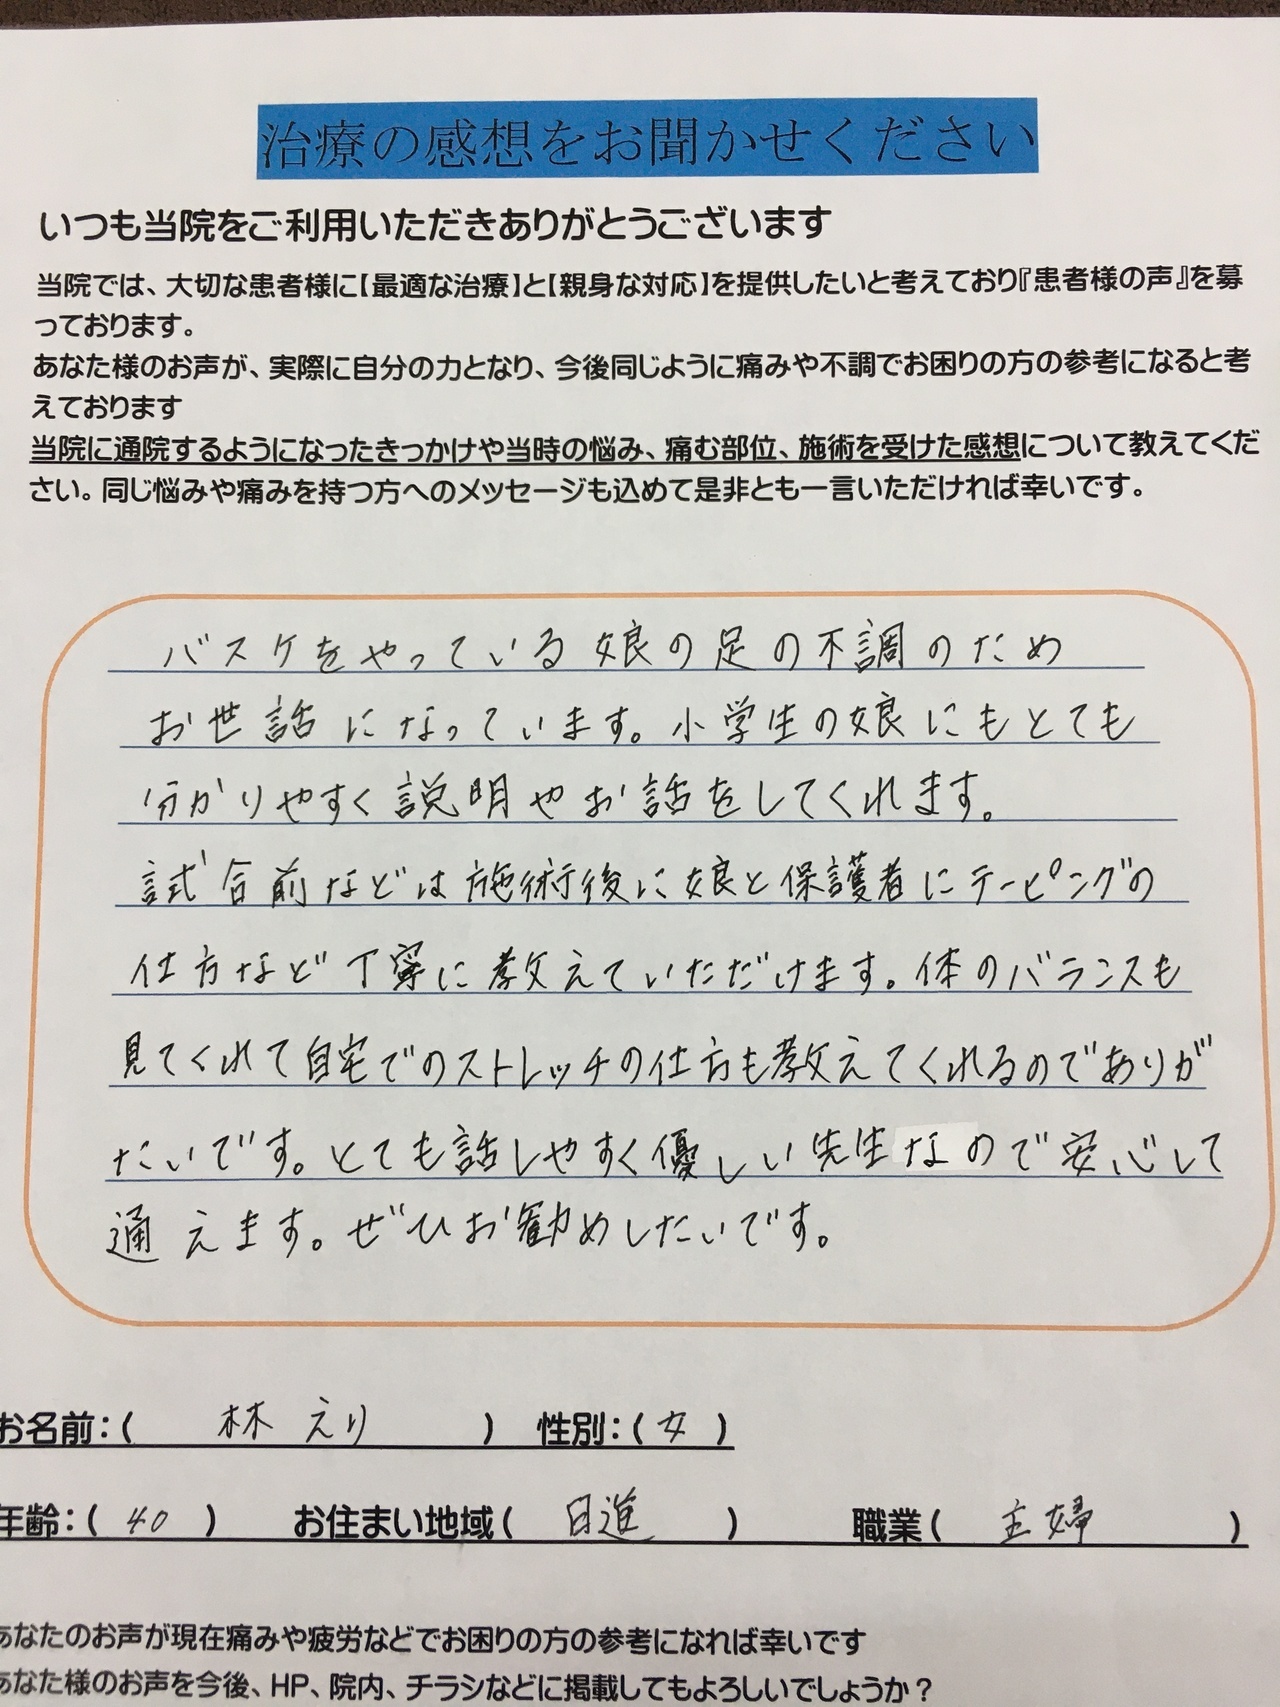 治療の感想をお聞かせください
いつも当院をご利用いただきありがとうございます
当院では、大切な患者様に【最適な治療】と【親身な対応】を提供したいと考えており『患者様の声』を募
っております。
あなた様のお声が、実際に自分の力となり、今後同じように痛みや不調でお困りの方の参考になると考
えております
当院に通院するようになったきっかけや当時の悩み、痛む部位、施術を受けた感想について教えてくだ
さい。同じ悩みや痛みを持つ方へのメッセージも込めて是非とも一言いただければ幸いです。
バスケをやっている娘の足の不調のため
お世話になっています。小学生の娘にもとても
分かりやすく説明やお話をしてくれます。
試合前などは施術後に娘と保護者にテーピングの
仕方など丁寧に教えていただけます。体のバランスも
見てくれて自宅でのストレッチの仕方も教えてくれるのでありが
たいです。とても話しやすく優しい先生なので安心して
通えます。ぜひお勧めしたいです。
お名前：( 林 えり ) 性別：( 女 )
年齢：( 40 ) お住まい地域( 日進 ) 職業( 主婦 )
あなたのお声が現在痛みや疲労などでお困りの方の参考になれば幸いです
あなた様のお声を今後、HP、院内、チラシなどに掲載してもよろしいでしょうか？